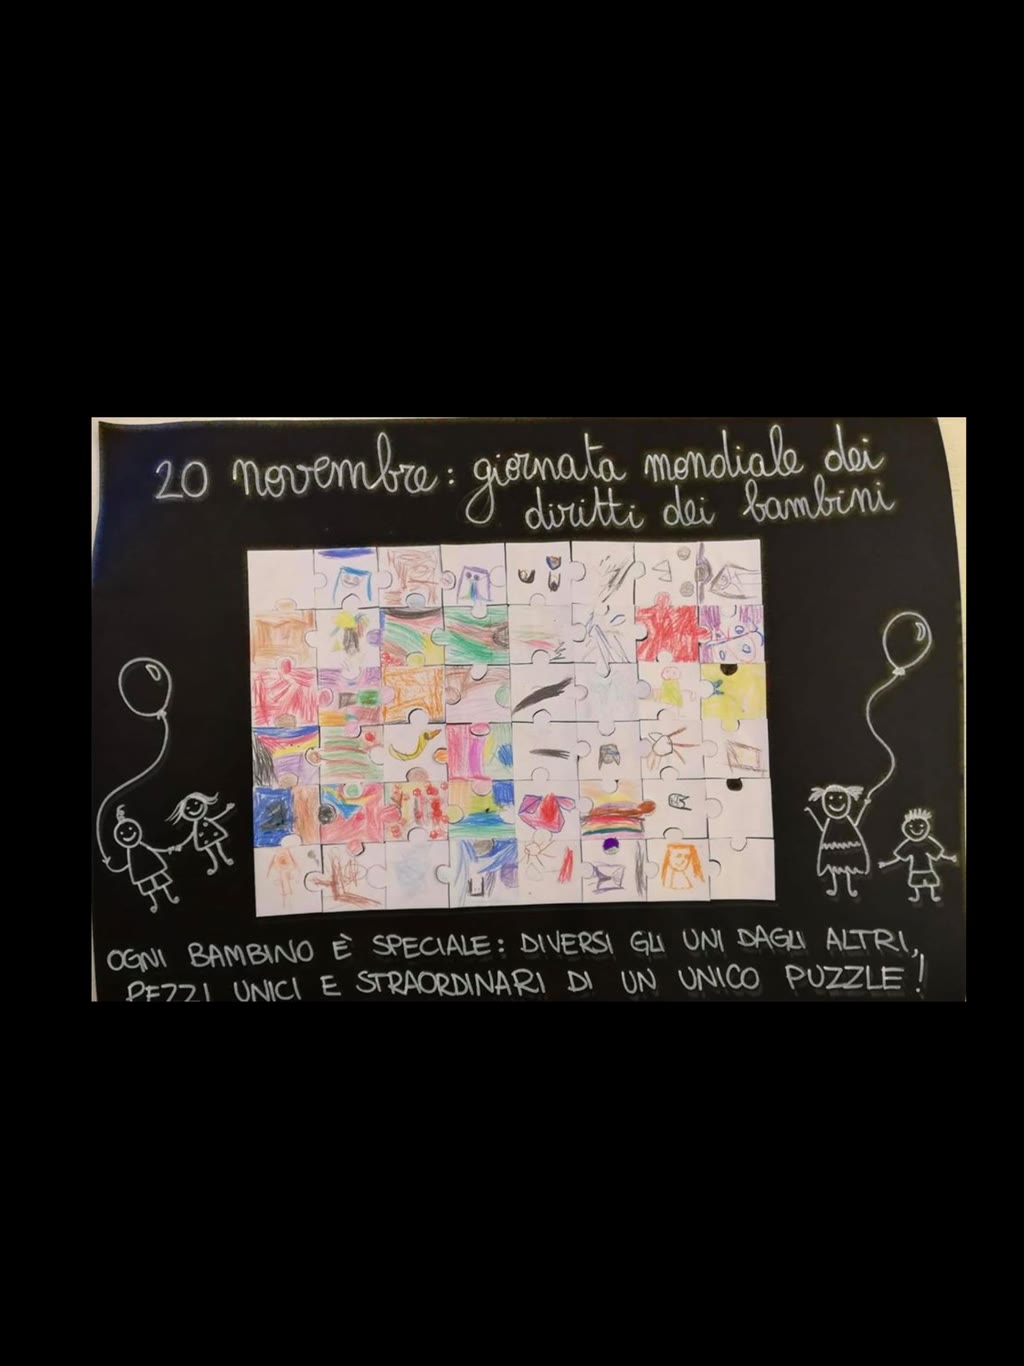 20 novembre: giornata mondiale dei
diritti dei bambini
OGNI BAMBINO È SPECIALE: DIVERSI GLI UNI DAGLI ALTRI,
PEZZI UNICI E STRAORDINARI DI UN UNICO PUZZLE!